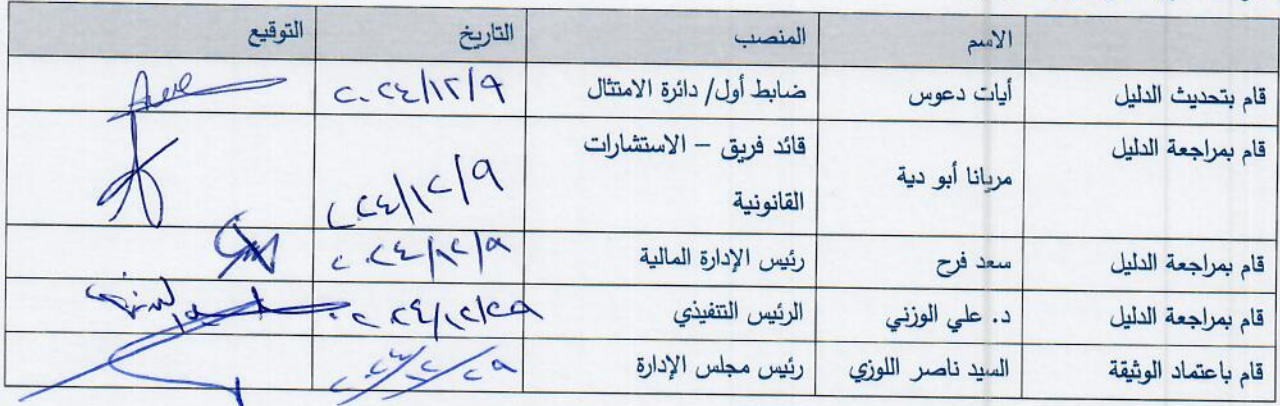 الاسم المنصب التاريخ التوقيع
قام بتحديث الدليل أيات دعوس ضابط أول/ دائرة الامتثال ٢٠٢٤/١٢/٩
قام بمراجعة الدليل مريانا أبو دية قائد فريق – الاستشارات
القانونية ٢٠٢٤/١٢/٩
قام بمراجعة الدليل سعد فرح رئيس الإدارة المالية ٢٠٢٤/١٢/٩
قام بمراجعة الدليل د. علي الوزني الرئيس التنفيذي ٢٠٢٤/١٢/٢٩
قام باعتماد الوثيقة السيد ناصر اللوزي رئيس مجلس الإدارة ٢٠٢٤/١٢/٢٩